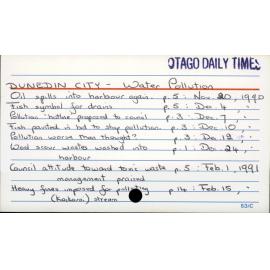 OTAGO DAILY TIMES
DUNEDIN CITY - Water Pollution
Oil spills into harbour again. p.5 : Nov. 20, 1990
Fish symbol for drains. p.5 : Dec. 4,
Pollution 'hotline' proposed to council p.3 : Dec. 7,
Fish painted in bid to stop pollution. p.3 : Dec. 10,
Pollution worse than thought? p.3 : Dec. 12,
Wool scour wastes washed into p.1 : Dec. 24,
harbour
Council attitude toward toxic waste p.5 : Feb. 1, 1991
management praised
Heavy fines imposed for polluting p.14 : Feb. 15,
(Kaikarai) stream
53/C